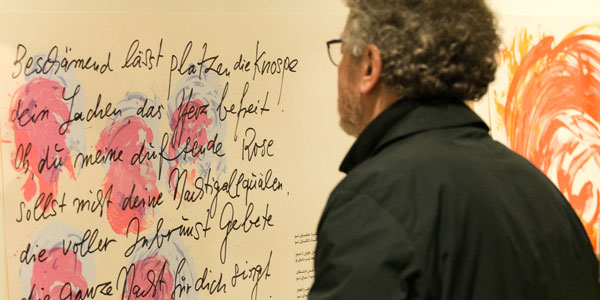 Beschämend lässt platzen die Knospe
dein Lachen, das Herz befreit.
Oh, du meine duftende Rose
sollst nicht deine Nachtigall quälen,
die voller Inbrunst Gebete
die ganze Nacht für dich singt